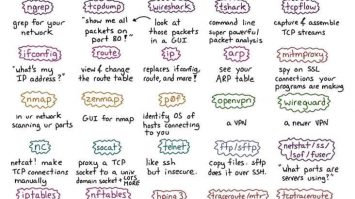 ngrep
tcpdump
wireshark
tshark
tcpflow
grep for your
network
"show me all
packets on
port 80!"
look at
those packets
in a GUI
command line
super powerful
packet analysis
capture & assemble
TCP streams
ifconfig
route
ip
arp
mitmproxy
"what's my
IP address?"
view & change
the route table
replaces ifconfig,
route, and more!
see your
ARP table
spy on SSL
connections your
programs are making
nmap
zenmap
p0f
openvpn
wireguard
in ur network
scanning ur ports
GUI for nmap
identify OS of
hosts connecting
to you
a VPN
a newer VPN
nc
socat
telnet
ftp/sftp
netstat/ss/
lsof/fuser
netcat! make
TCP connections
manually
proxy a TCP
socket to a unix
domain socket + LOTS
MORE
like ssh
but insecure.
copy files. sftp
does it over SSH.
"what ports are
servers using?"
iptables
nftables
hping3
traceroute/mtr
tcptraceroute